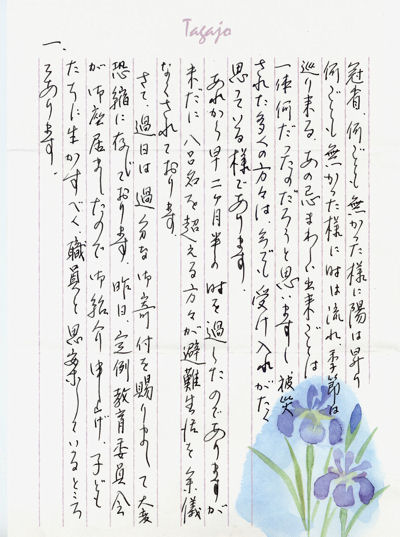 Tagajo
冠省、何ごとも無かった様に陽は昇り
何ごとも無かった様に時は流れ、季節は
巡り来る、あの忌まわしい出来ごとは
一体何だったのだろうと思いますし、被災
された多くの方々は、今でも受け入れがたく
思っている様であります。
あれから早二ヶ月半の時を過したのでありますが
未だに八百名を超える方々が避難生活を余儀
なくされております。
さて、過日は過分な御寄付を賜りまして大変
恐縮に存じております。昨日、定例教育委員会
が御座居ましたので御紹介申上げ、子ども
たちに生かすべく、職員と思案しているところ
であります。
一、